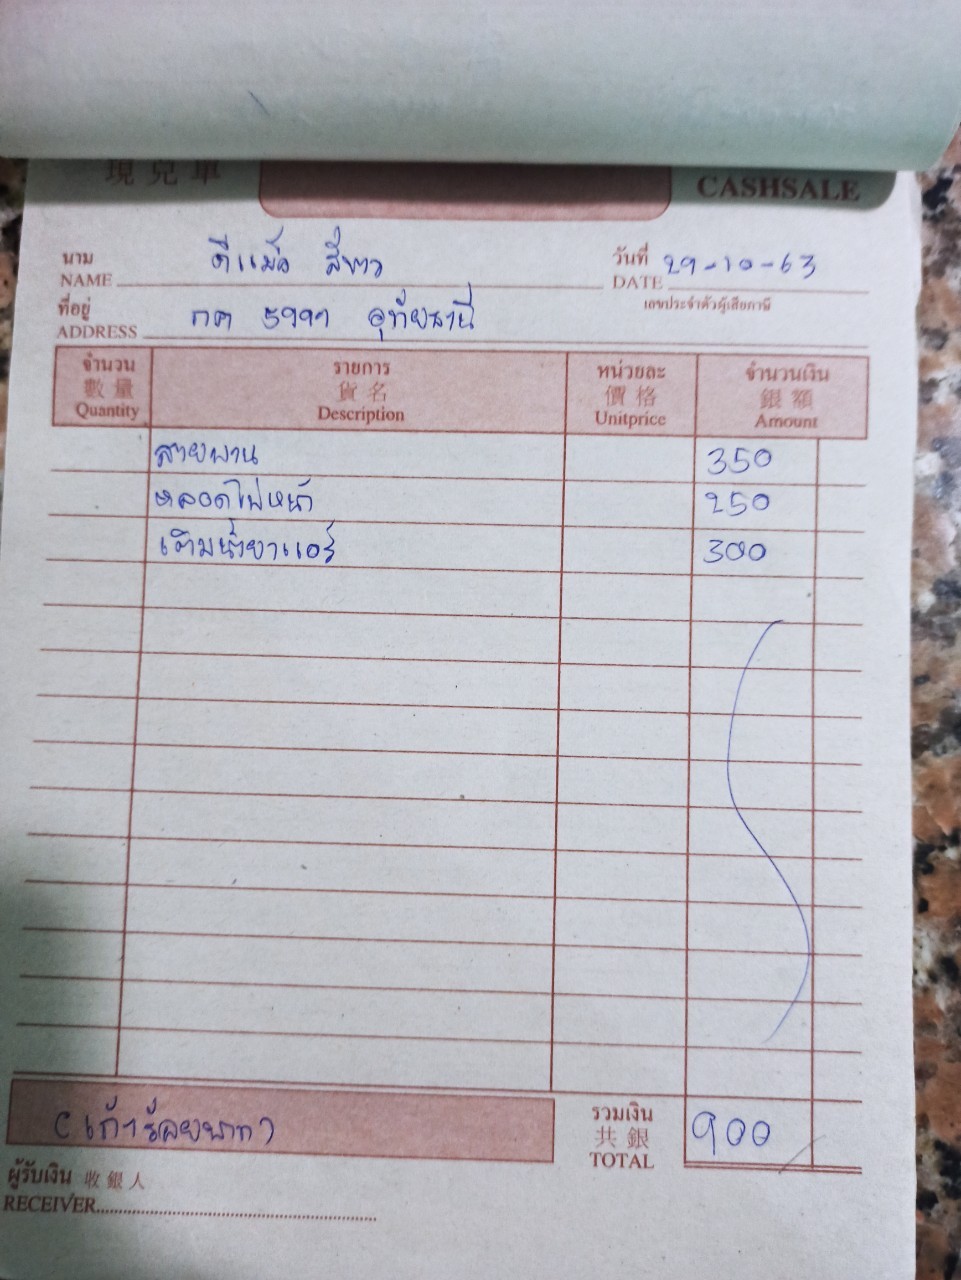 現兌單
CASHSALE
นาม ดีแม็ค สีขาว วันที่ 29-10-63
NAME DATE
ที่อยู่ กค 5999 อุทัยธานี เลขประจำตัวผู้เสียภาษี
ADDRESS
จำนวน รายการ หน่วยละ จำนวนเงิน
數量 貨名 價格 銀額
Quantity Description Unitprice Amount
สายพาน 350
หลอดไฟหน้า 250
เติมน้ำยาแอร์ 300
(เก้าร้อยบาท) รวมเงิน 900
共銀
TOTAL
ผู้รับเงิน 收銀人
RECEIVER